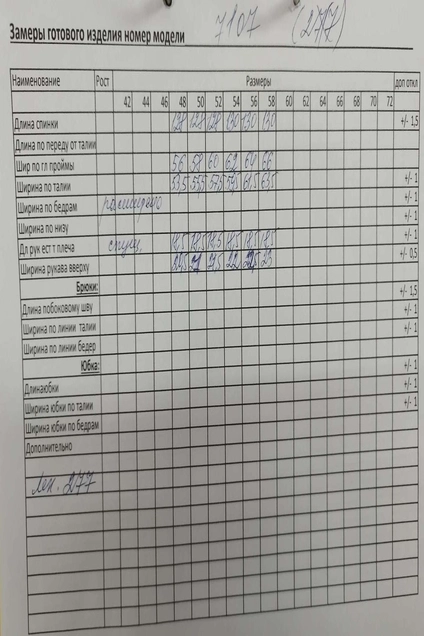 Замеры готового изделия номер модели 7107 (2717)
Наименование Рост Размеры доп откл
42 44 46 48 50 52 54 56 58 60 62 64 66 68 70 72
Длина спинки 128 128 128 130 130 130 +/- 1,5
Длина по переду от талии
Шир по гл проймы 56 58 60 62 64 66
Ширина по талии 53,5 55,5 57,5 59,5 61,5 63,5 +/- 1
Ширина по бедрам +/- 1
Ширина по низу +/- 1
Дл рук ест т плеча 18,5 18,5 18,5 18,5 18,5 18,5 +/- 1
Ширина рукава вверху 21 21,5 22 22,5 23 +/- 0,5
Брюки:
Длина побоковому шву +/- 1,5
Ширина по линии талии +/- 1
Ширина по линии бедер +/- 1
Юбка:
Длинаюбки +/- 1
Ширина юбки по талии +/- 1
Ширина юбки по бедрам +/- 1
Дополнительно
Лек. 2177